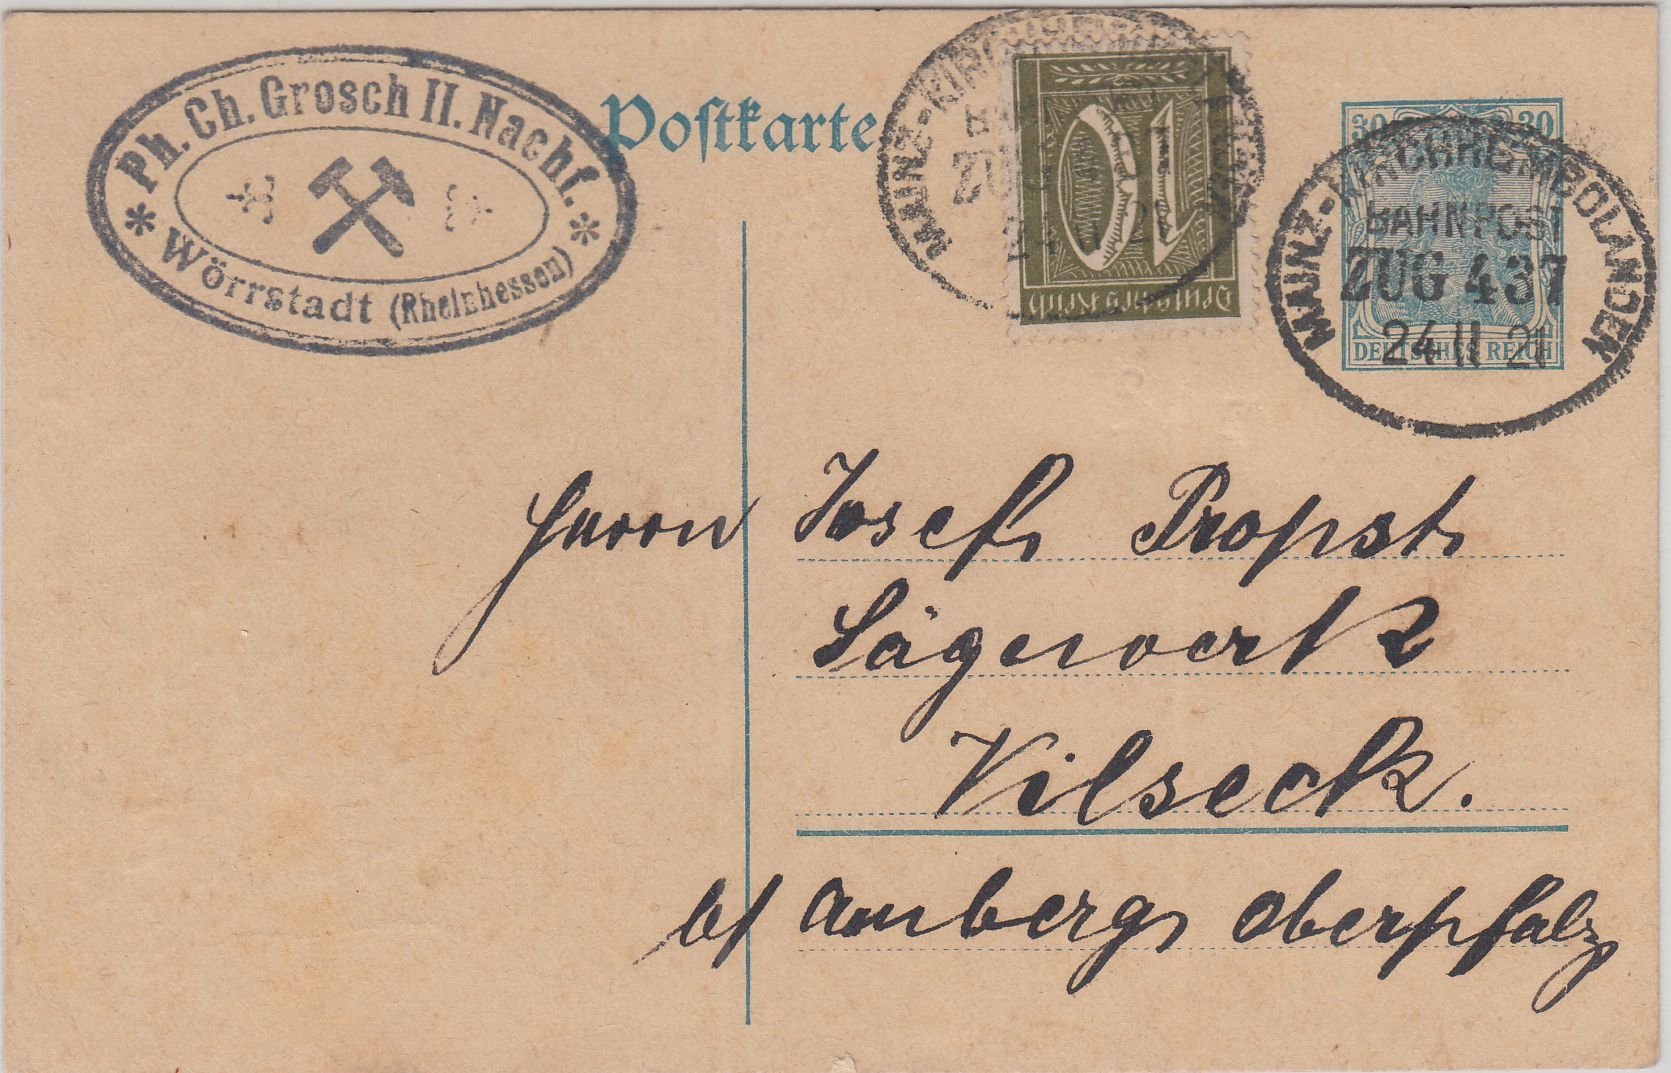 Ph. Ch. Grosch II. Nachf.
* Wörrstadt (Rheinhessen) *
Postkarte
10
Deutsches Reich
MAINZ-KIRCHHEIMBOLANDEN
30 30
DEUTSCHES REICH
MAINZ-KIRCHHEIMBOLANDEN
BAHNPOST
ZUG 437
24 11 21
Herrn Josef Propst
Sägewerk
Vilseck.
b/ Amberg, Oberpfalz